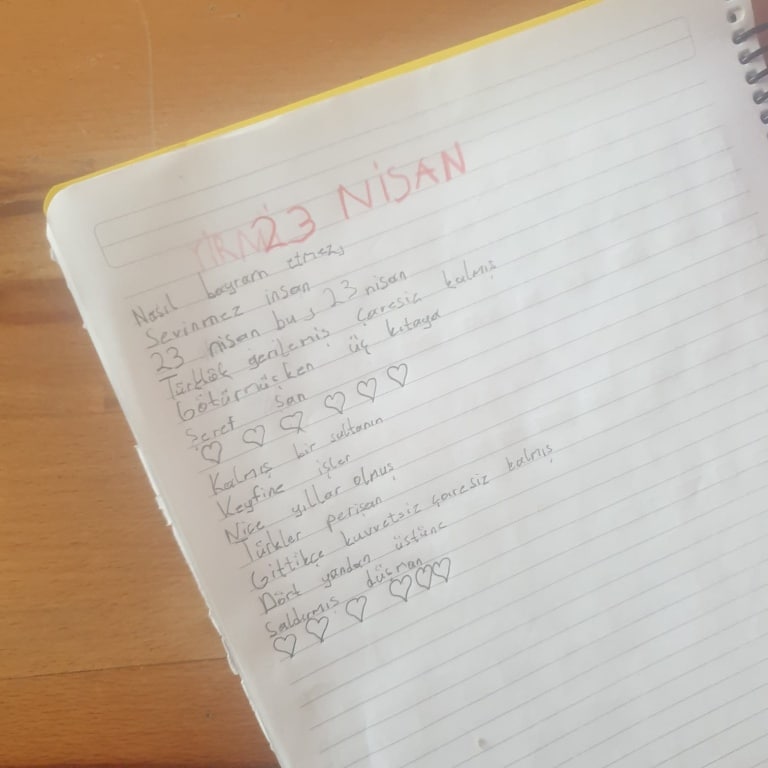 YİRMİ 23 NİSAN
Nasıl bayram etmez,
Sevinmez insan
23 nisan bu, 23 nisan
Türklük gerilemiş çaresiz kalmış
Götürmüşken üç kıtaya
Şeref şan
Kalmış bir sultanın
Keyfine işler
Nice yıllar olmuş
Türkler perişan
Gittikçe kuvvetsiz çaresiz kalmış
Dört yandan üstüne
Saldırmış düşman